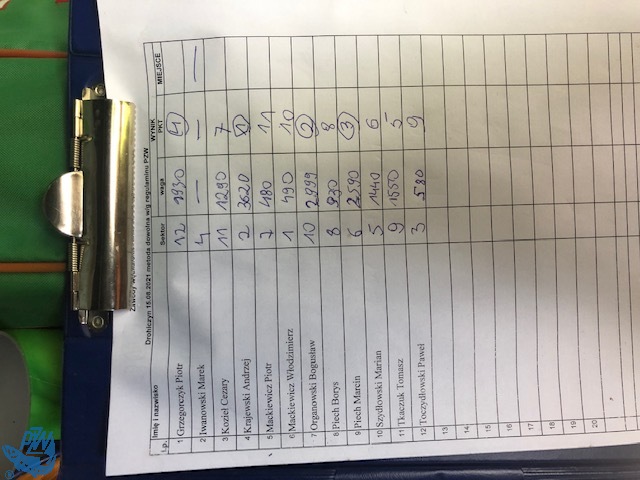 Zawody
Drohiczyn 15.08.2021 metoda dowolna w/g regulaminu PZW
Lp. Imię i nazwisko Sektor waga WYNIK PKT MIEJSCE
1 Grzegorczyk Piotr 12 1930 4
2 Iwanowski Marek 4 — — —
3 Kozieł Cezary 11 1290 7
4 Krajewski Andrzej 2 3620 1
5 Mackiewicz Piotr 7 480 11
6 Mackiewicz Włodzimierz 1 490 10
7 Organowski Bogusław 10 2999 2
8 Piech Borys 8 930 8
9 Piech Marcin 6 2590 3
10 Szydłowski Marian 5 1440 6
11 Tkaczuk Tomasz 9 1550 5
12 Toczydłowski Paweł 3 580 9
13
14
15
16
17
18
19
20
PZW